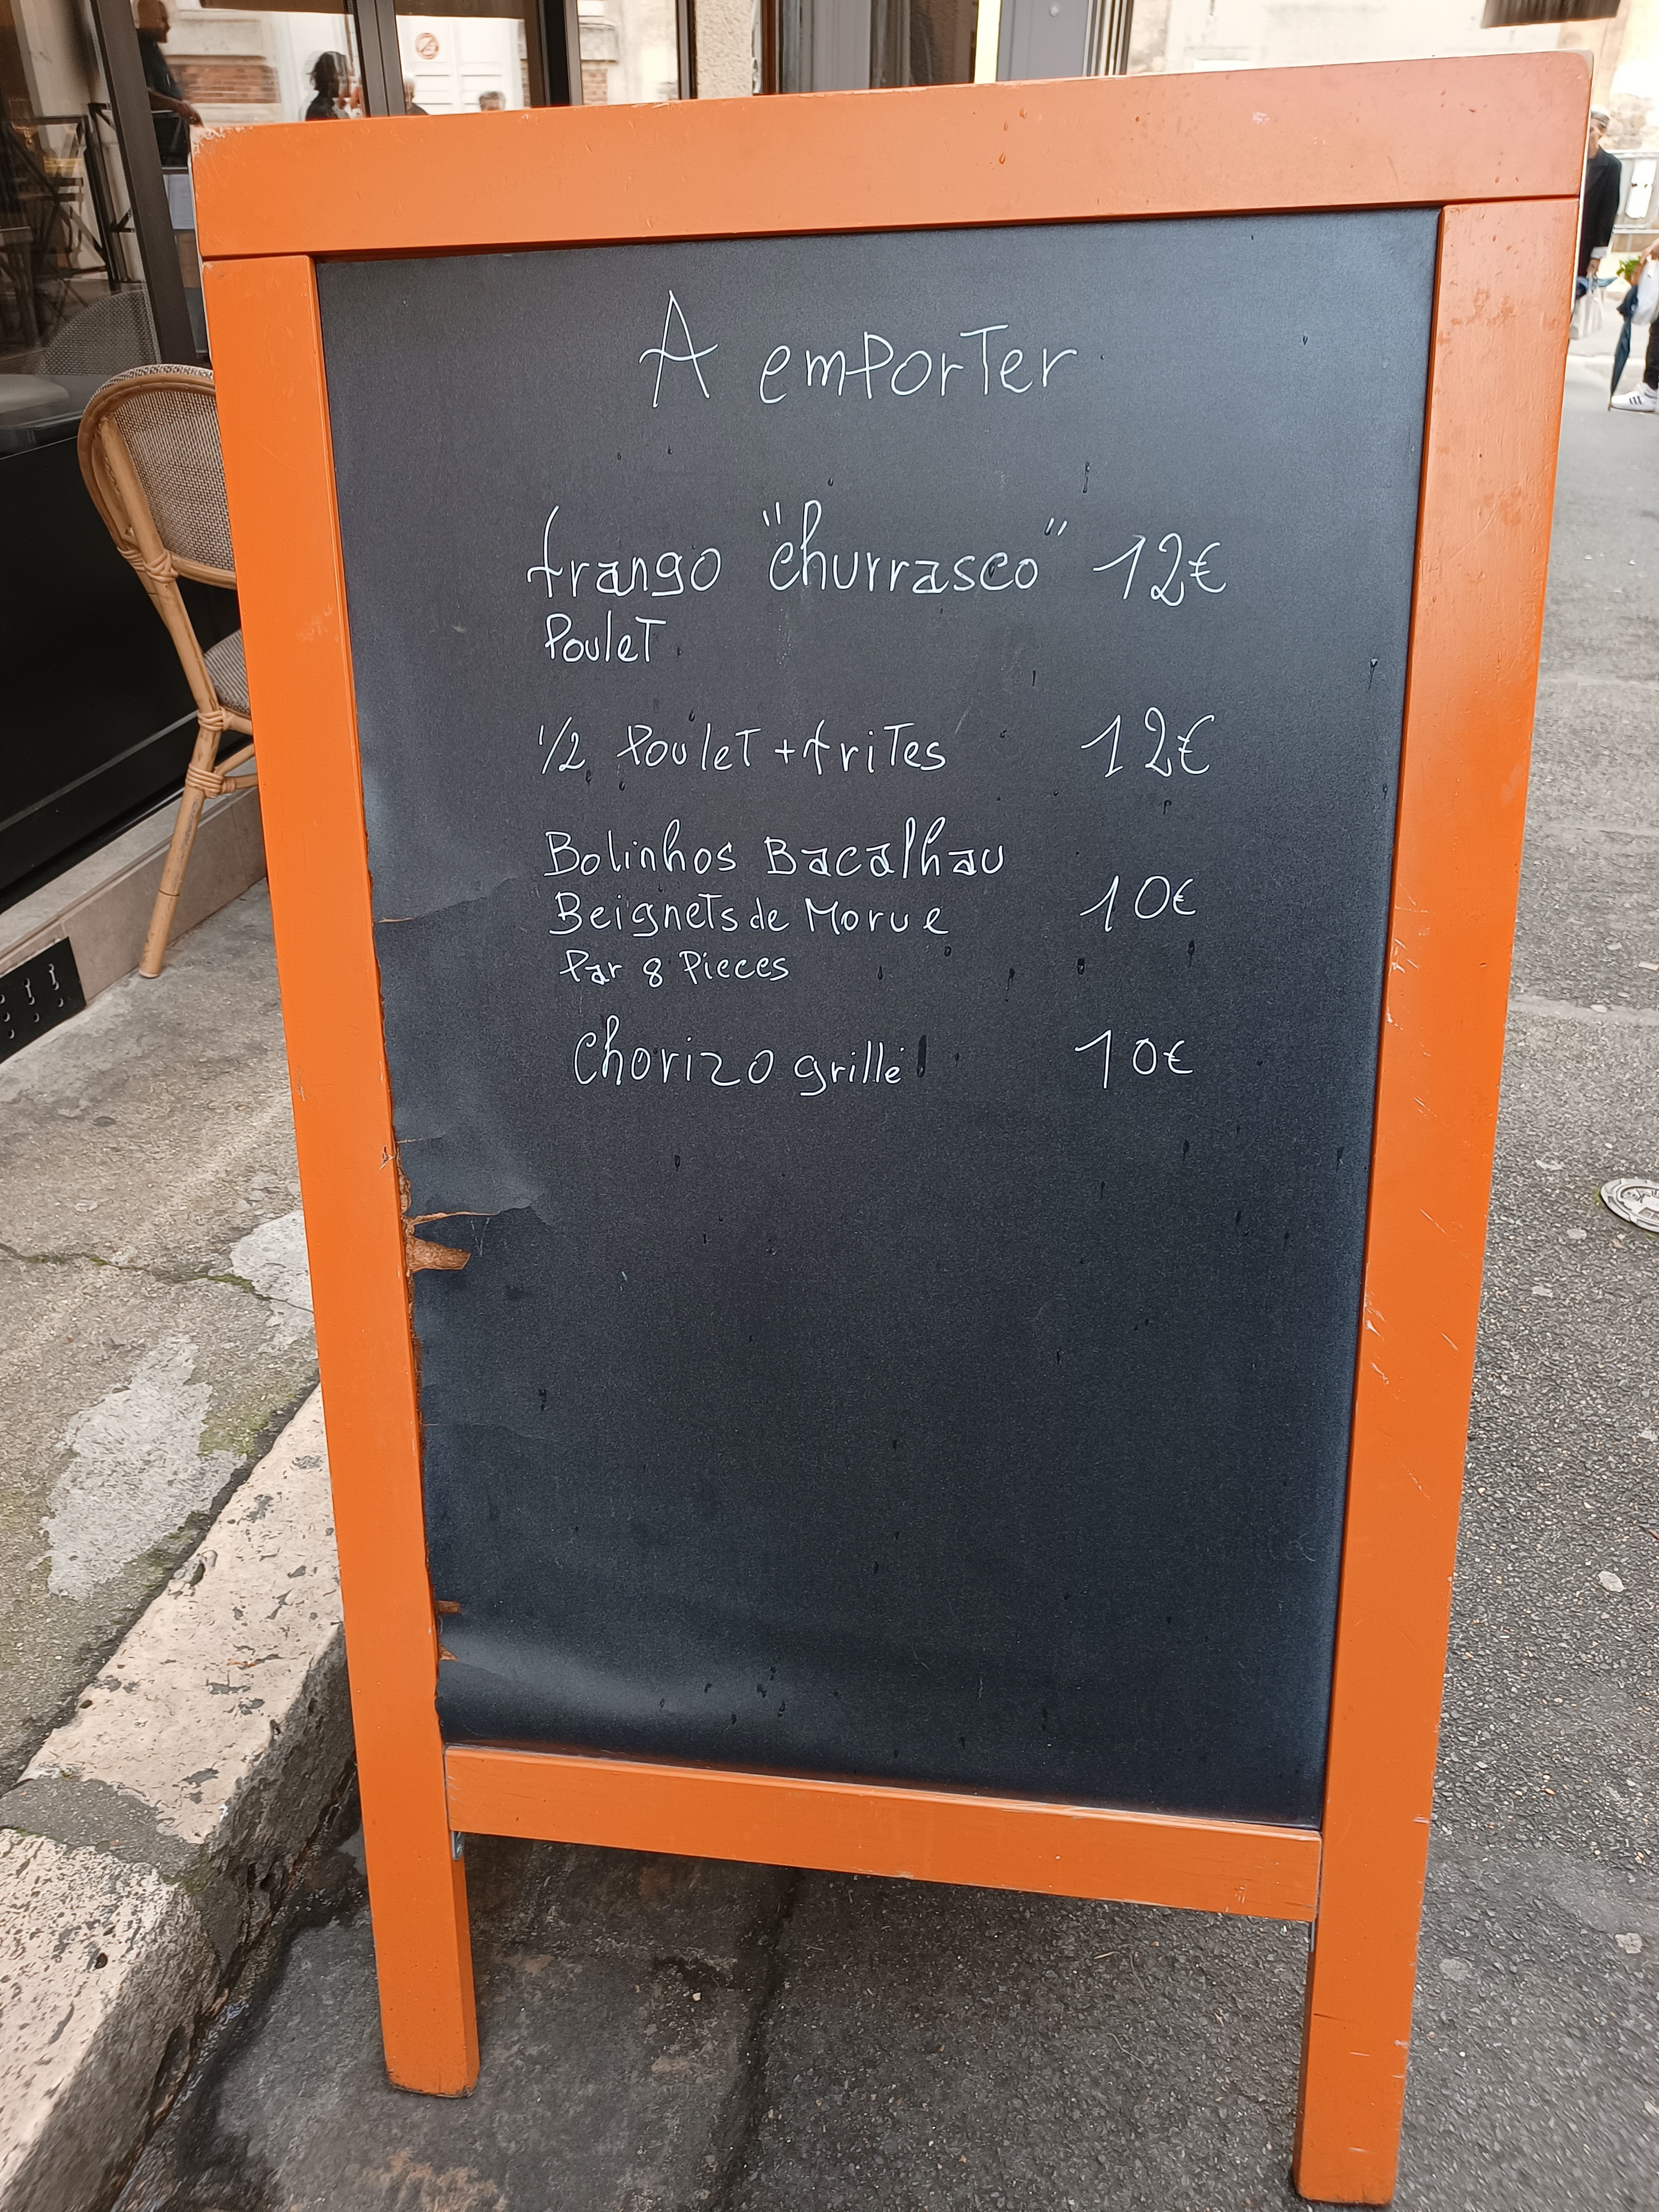 A emporter
frango "churrasco" 12€
Poulet
1/2 Poulet + frites 12€
Bolinhos Bacalhau
Beignets de Morue 10€
Par 8 Pieces
Chorizo grillé 10€